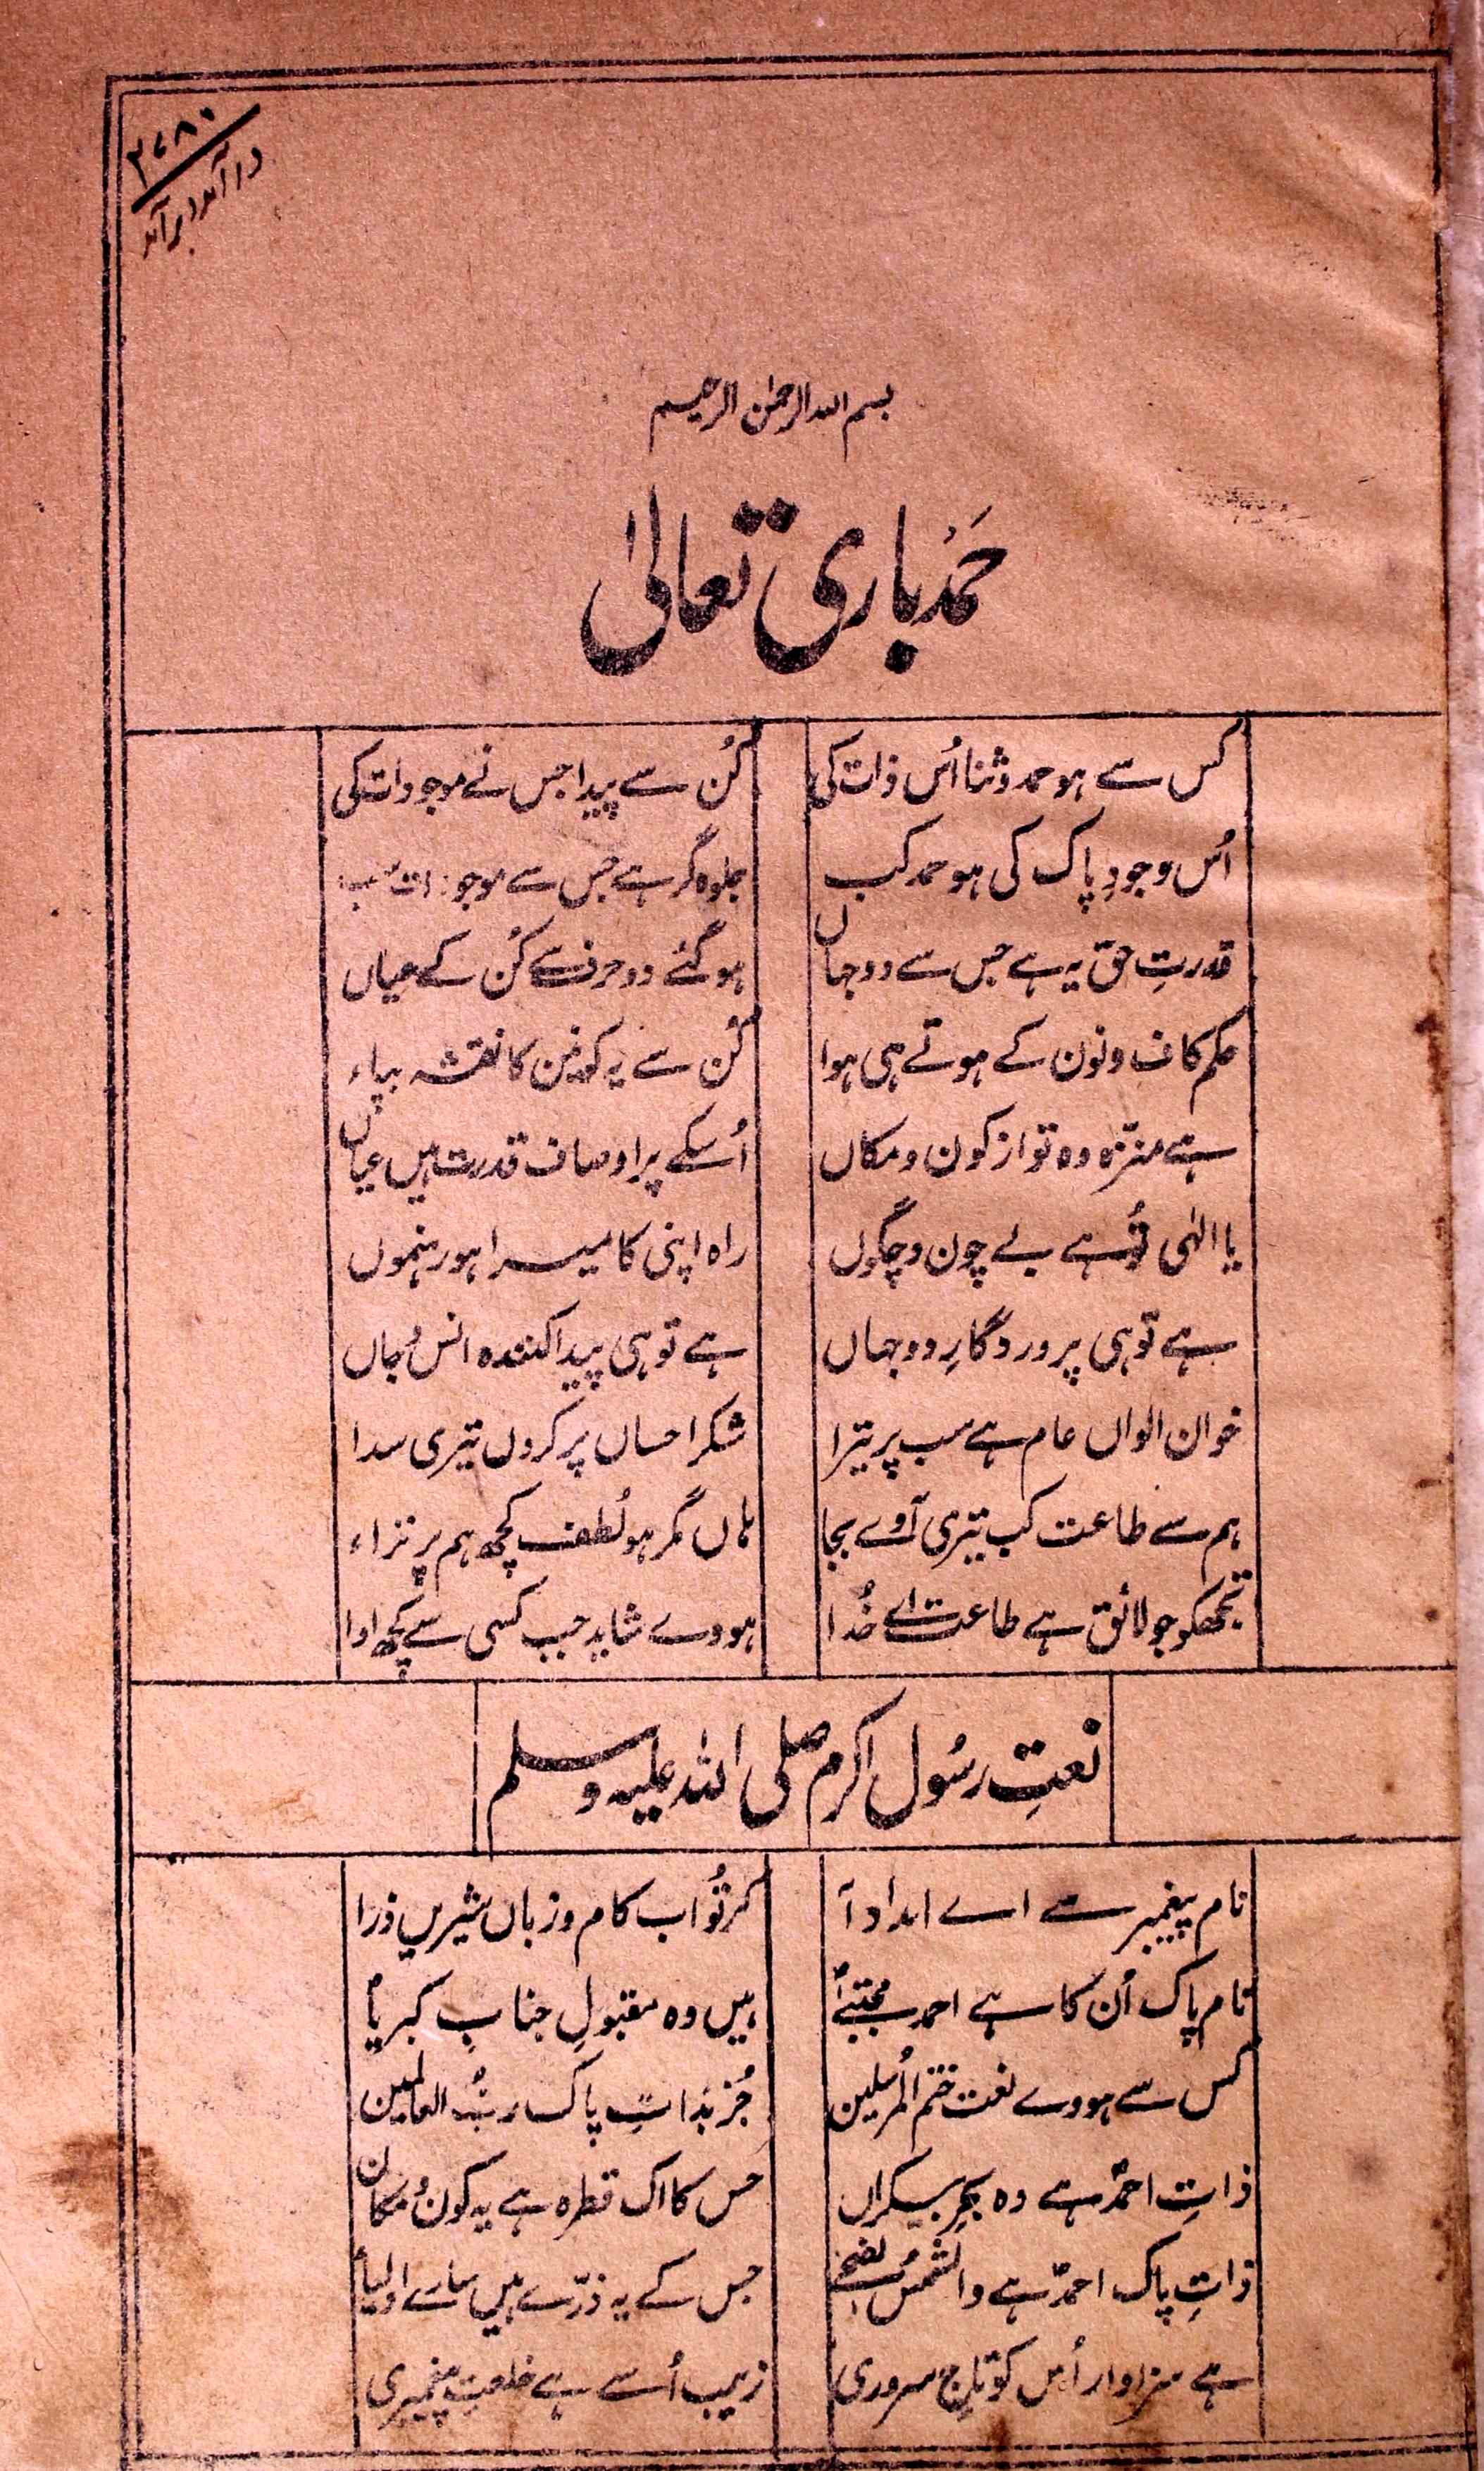 ۲۷۸۰
درآمد برآمد
بسم اللہ الرحمٰن الرحیم
حَمدِ باری تعالیٰ
کس سے ہو حمد و ثنا اُس ذات کی کُن سے پیدا جس نے موجودات کی
اُس وجودِ پاک کی ہو حمد کب جلوہ گر ہے جس سے موجودات سب
قدرتِ حق یہ ہے جس سے دو جہاں ہو گئے دو حرف سے کُن کے عیاں
حکم کاف و نون کے ہوتے ہی ہوا کُن سے یہ کن کا نقشہ بپاء
ہے منزّہ وہ تو از کون و مکاں اُسکے پر اوصاف قدرت ہیں عیاں
یا الٰہی تُو ہے بے چون و چگوں راہ اپنی کا میرا ہو رہنموں
ہے تو ہی پروردگارِ دو جہاں ہے تو ہی پیدا کنندہ انس و جاں
خوان الواں عام ہے سب پر تیرا شکر احساں پر کروں تیری سدا
ہم سے طاعت کب تیری آوے بجا ہاں مگر ہو لُطف کچھ ہم پر تراء
تجھکو جو لائق ہے طاعت اے خُدا ہووے شاید جب کسی سے کچھ ادا
نعتِ رسُول اکرم صلی اللہ علیہ وسلم
نام پیغمبر سے اے امداد آ کر تُو اب کام و زباں شیریں ذرا
نام پاک اُن کا ہے احمد مجتبےٰؐ ہیں وہ مقبولِ جنابِ کبریاؐ
کس سے ہووے نعت ختم المُرسلین جُز بذاتِ پاک ربُّ العالمین
ذاتِ احمدؐ ہے وہ بحرِ بیکراں جس کا اک قطرہ ہے یہ کون و مکاں
ذاتِ پاک احمدؐ ہے والشمسُ لضحٰے جس کے یہ ذرّے ہیں سارے اولیاؑ
ہے سزاوار اُس کو تاجِ سروری زیب اُسے ہے خلعتِ پیغمبری